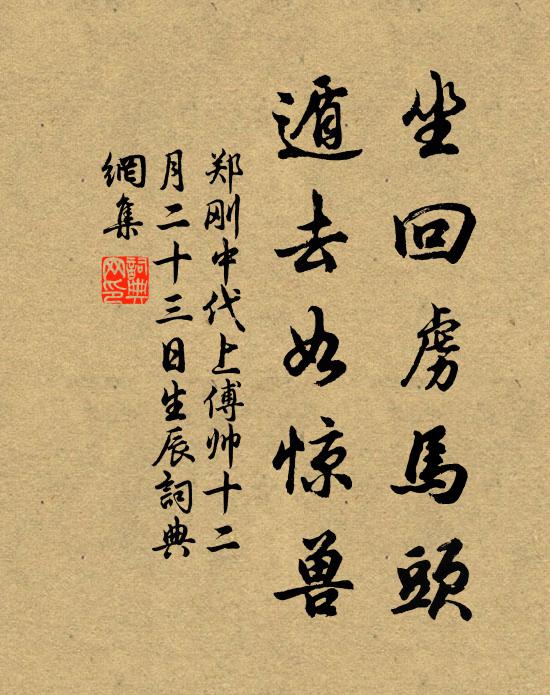 坐回虏馬頭
遁去如惊兽
郑刚中代上傅帅十二
月二十三日生辰詞典
網集
詞典
网印